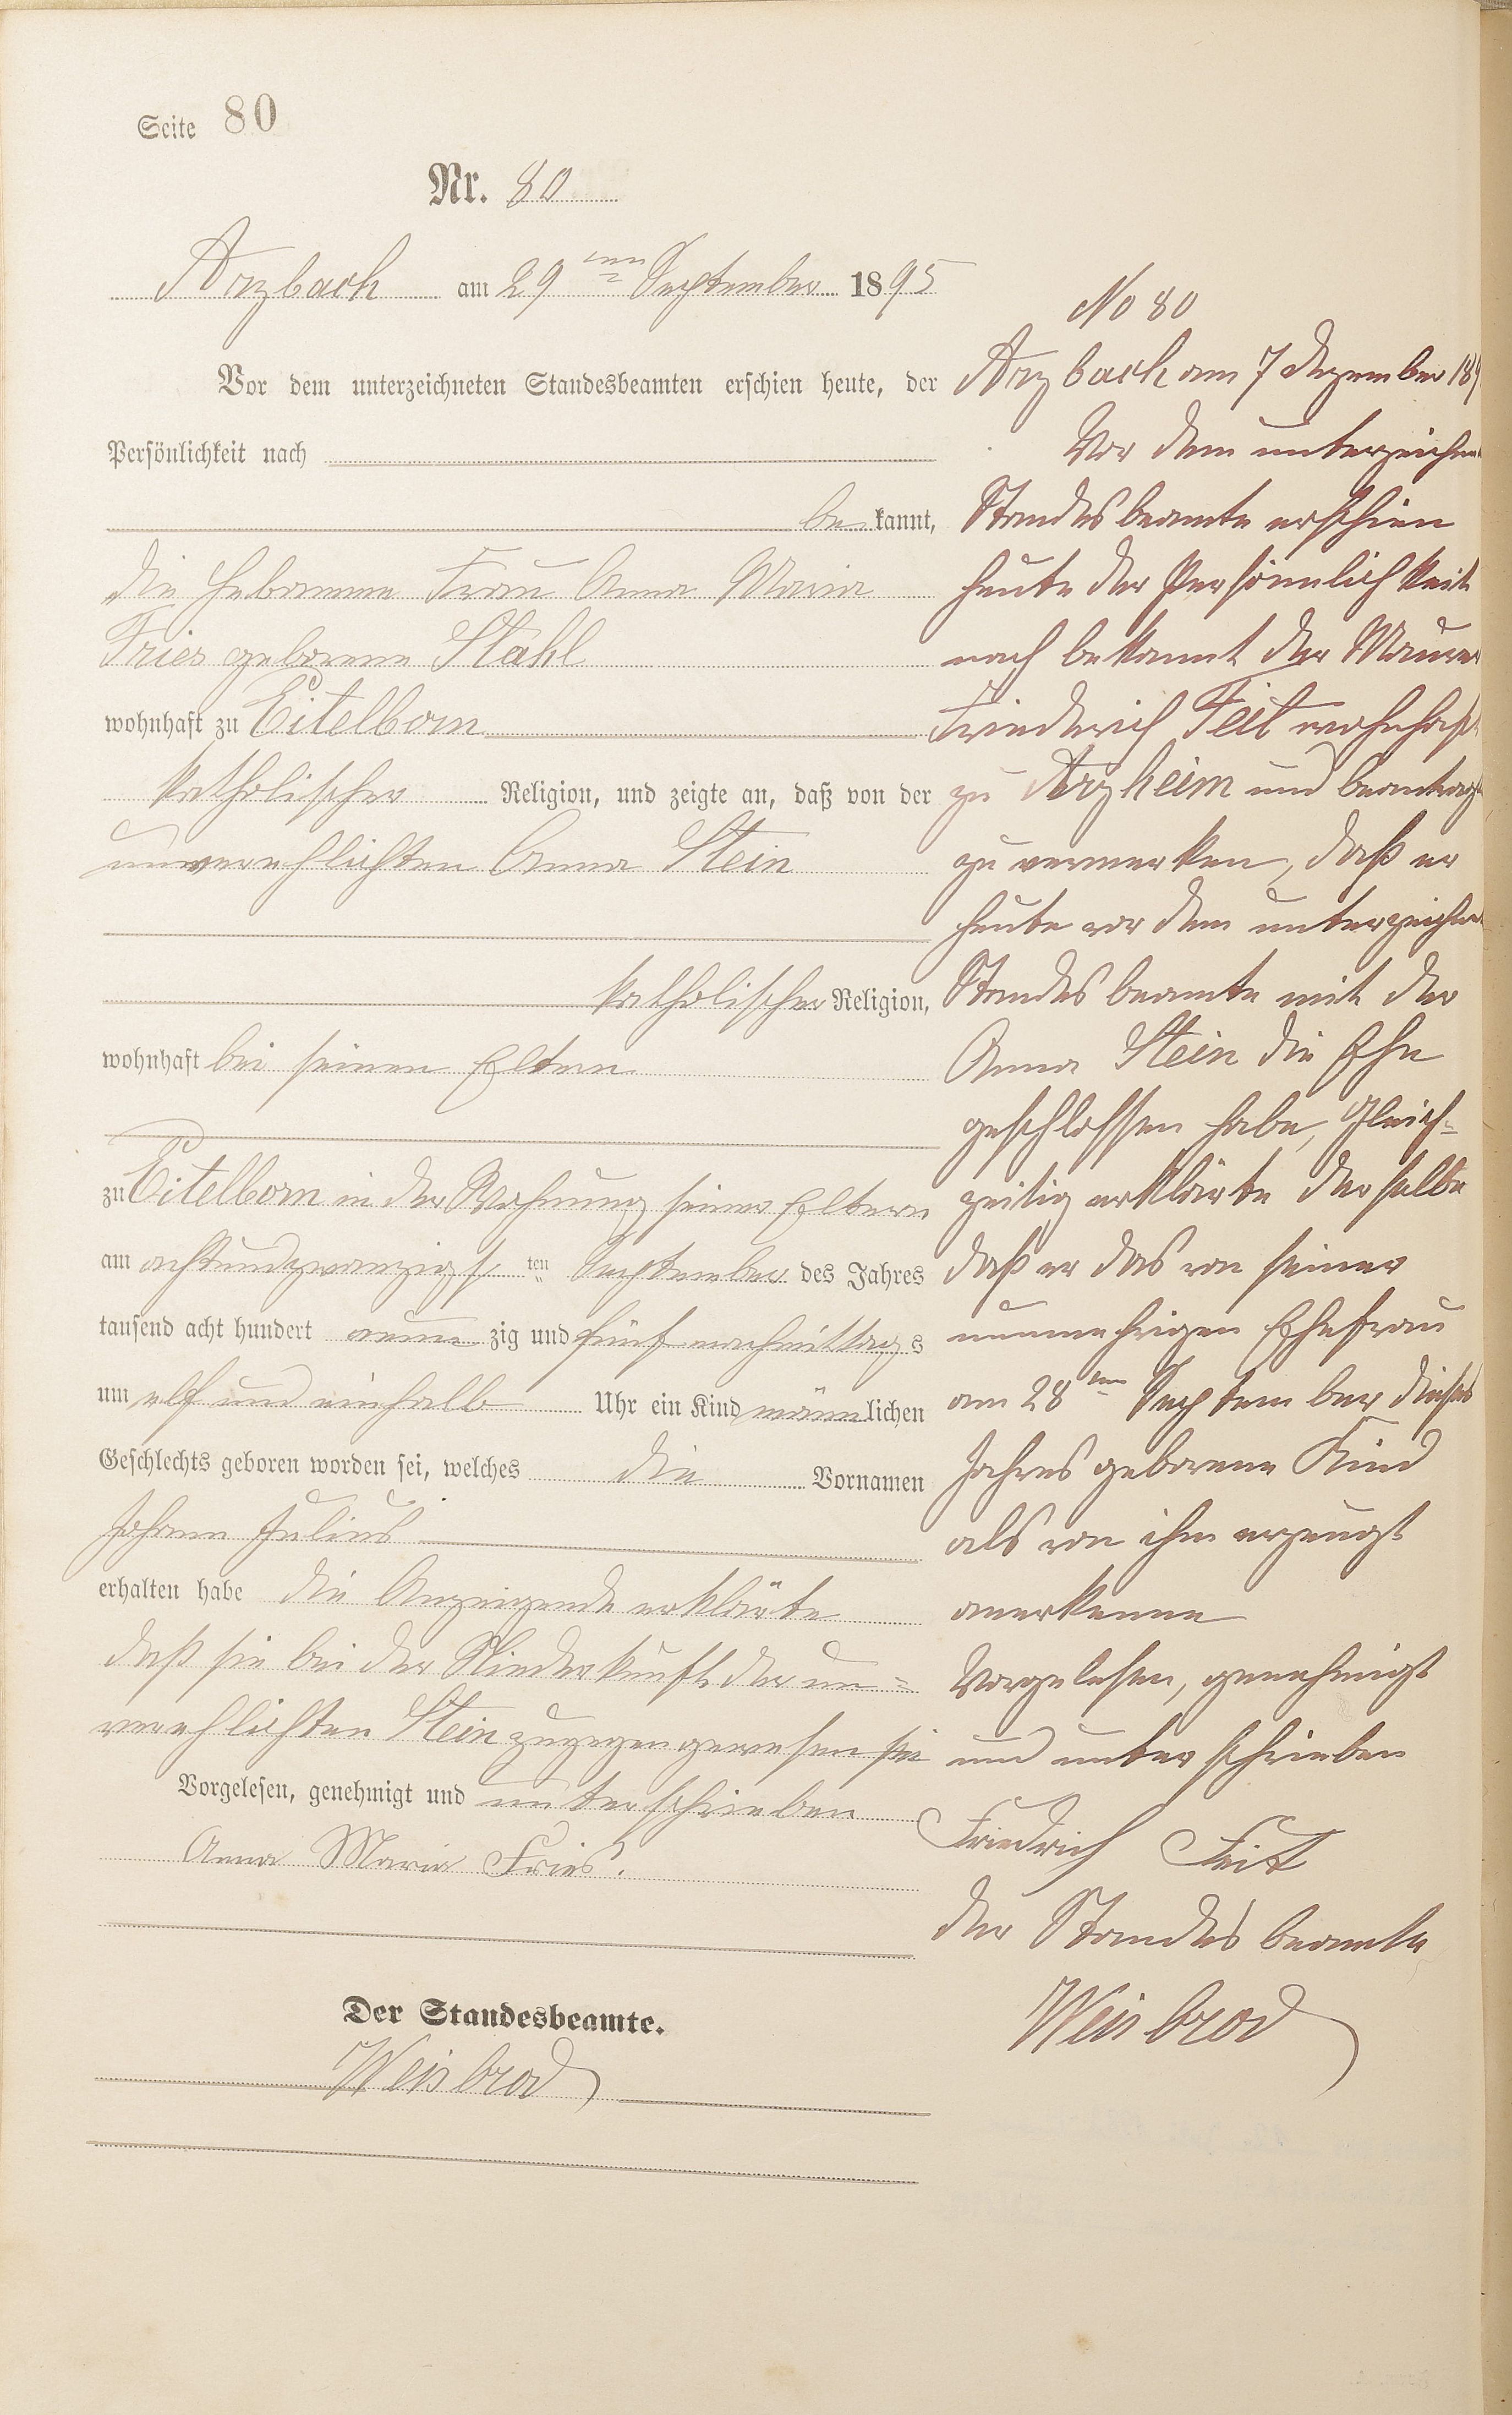 Seite 80
Nr. 80
Arzbach am 29ten September 1895
Vor dem unterzeichneten Standesbeamten erschien heute, der
Persönlichkeit nach
be kannt,
die Hebamme Frau Anna Maria
Fries geborene Stahl
wohnhaft zu Eitelborn
katholischer Religion, und zeigte an, daß von der
unverehlichten Anna Stein
katholischer Religion,
wohnhaft bei seinen Eltern
zu Eitelborn in der Wohnung seiner Eltern
am achtundzwanzigs ten September des Jahres
tausend acht hundert neun zig und fünf nachmittags
um elf und einhalb Uhr ein Kind männlichen
Geschlechts geboren worden sei, welches die Vornamen
Johann Julius
erhalten habe die Anzeigende erklärte
daß sie bei der Niederkunft der un=
verehlichten Stein zugegen gewesen sei
Vorgelesen, genehmigt und unterschrieben
Anna Maria Fries.
Der Standesbeamte.
Weisbrod
No 80
Arzbach am 7 Dezember 189
Vor dem unterzeichne
Standesbeamte erschien
heute der Persönnlichkeit
nach bekannt der Maurer
Friederich Feit wohnhaft
zu Arzheim und beantrag
zu vermerken, daß er
heute vor dem unterzeichne
Standesbeamte mit der
Anna Stein die Ehe
geschlossen habe, Gleich-
zeitig erklärte derselbe
daß er das von seiner
nunmehrigen Ehefrau
am 28ten September dieses
Jahres geborene Kind
als von ihm erzeugt
anerkenne
Vorgelesen, genehmigt
und unterschrieben
Friedrich Feit
Der Standesbeamte
Weisbrod